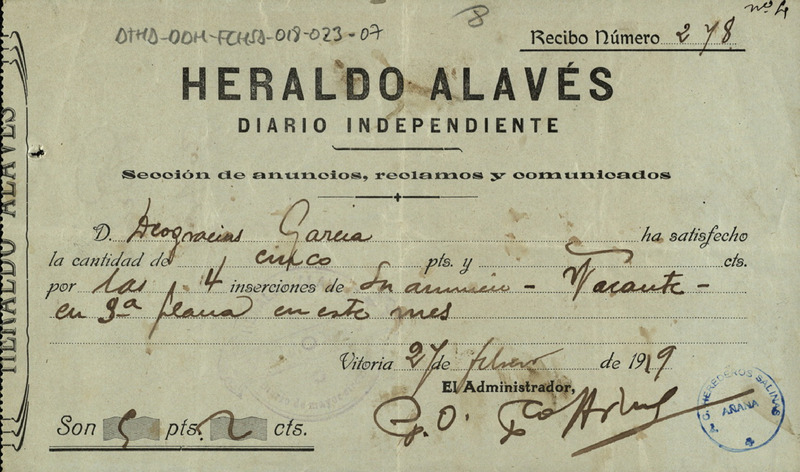 DTHA-DDH-FCHSA-018-023-07
8
nº 4
Recibo Número 278
HERALDO ALAVÉS
HERALDO ALAVÉS
DIARIO INDEPENDIENTE
Sección de anuncios, reclamos y comunicados
D. Deogracias Garcia ha satisfecho
la cantidad de cinco pts. y cts.
por las 4 inserciones de su anuncio - Vacante -
en 3ª plana en este mes
Vitoria 27 de febrero de 1919
El Administrador,
P.O.
Son 5 pts. cts.
HEREDEROS SALINAS
ARANA